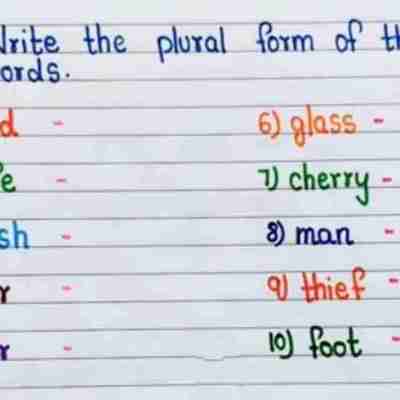 Write the plural form of th
ords.
d - 6) glass -
e - 7) cherry -
sh - 8) man -
r - 9) thief -
r - 10) foot -